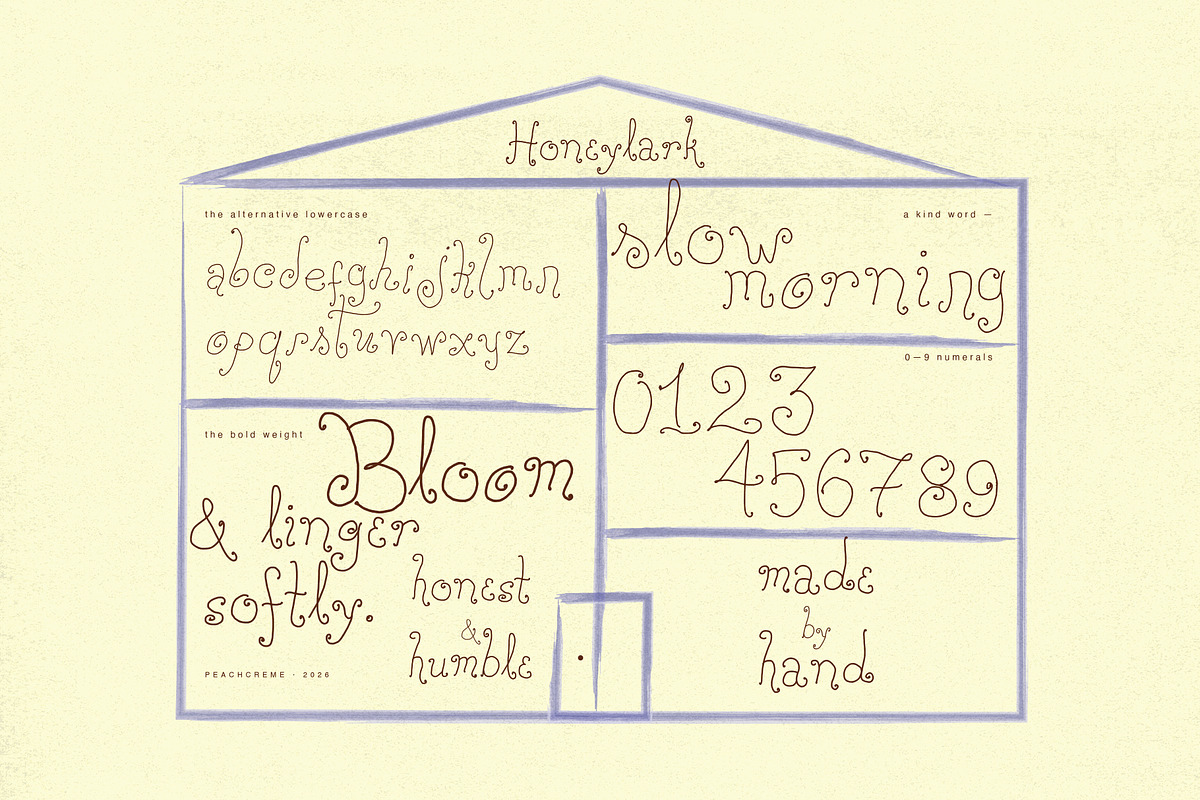 Honeylark
the alternative lowercase
abcdefghijklmn
opqrstuvwxyz
a kind word —
slow
morning
0—9 numerals
0123
456789
the bold weight
Bloom
& linger
softly.
honest
&
humble
PEACHCREME · 2026
made
by
hand